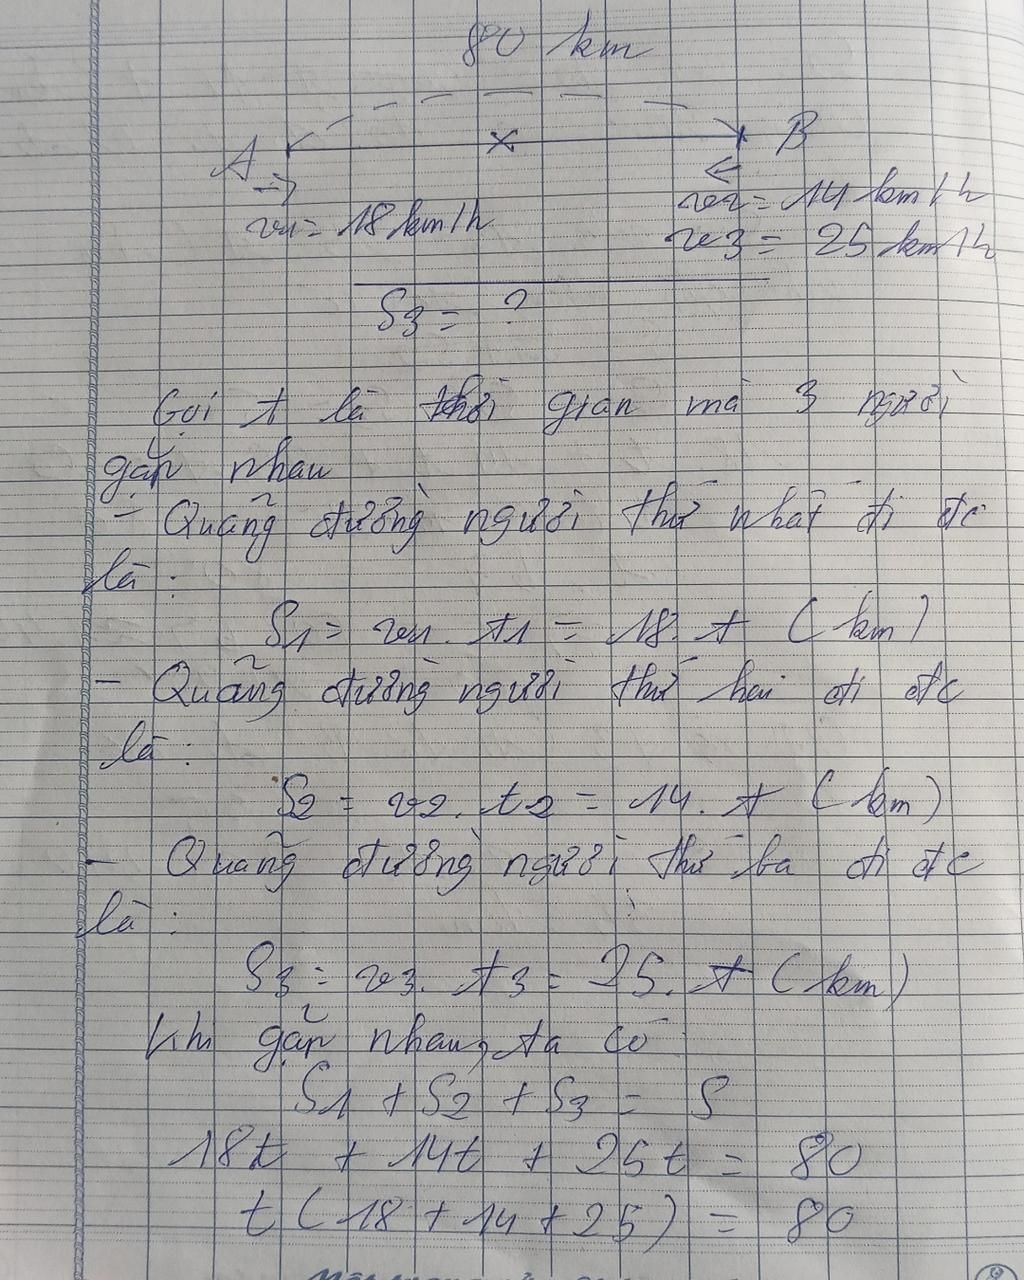 80 km
A B
v1 = 18 km/h v2 = 14 km/h
v3 = 25 km/h
S3 = ?
Gọi t là thời gian mà 3 người
gặp nhau
- Quãng đường người thứ nhất đi đc
là :
S1 = v1. t1 = 18. t (km)
- Quãng đường người thứ hai đi đc
là :
S2 = v2. t2 = 14. t (km)
- Quãng đường người thứ ba đi đc
là :
S3 = v3. t3 = 25. t (km)
Khi gặp nhau, ta có
S1 + S2 + S3 = S
18t + 14t + 25t = 80
t (18 + 14 + 25) = 80